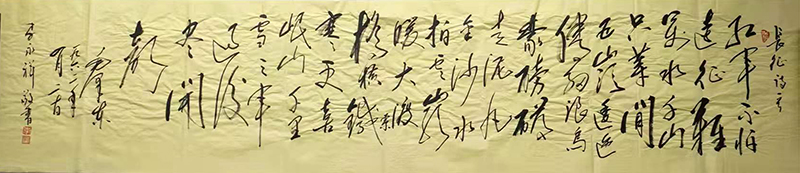 长征诗一首
红军不怕
远征难
万水千山
只等闲
五岭逶迤
腾细浪乌
蒙磅礴
走泥丸
金沙水
拍云崖
暖大渡
桥横铁索
寒更喜
岷山千里
雪三军
过后
尽开
颜
毛泽东
一九六二年
敬书